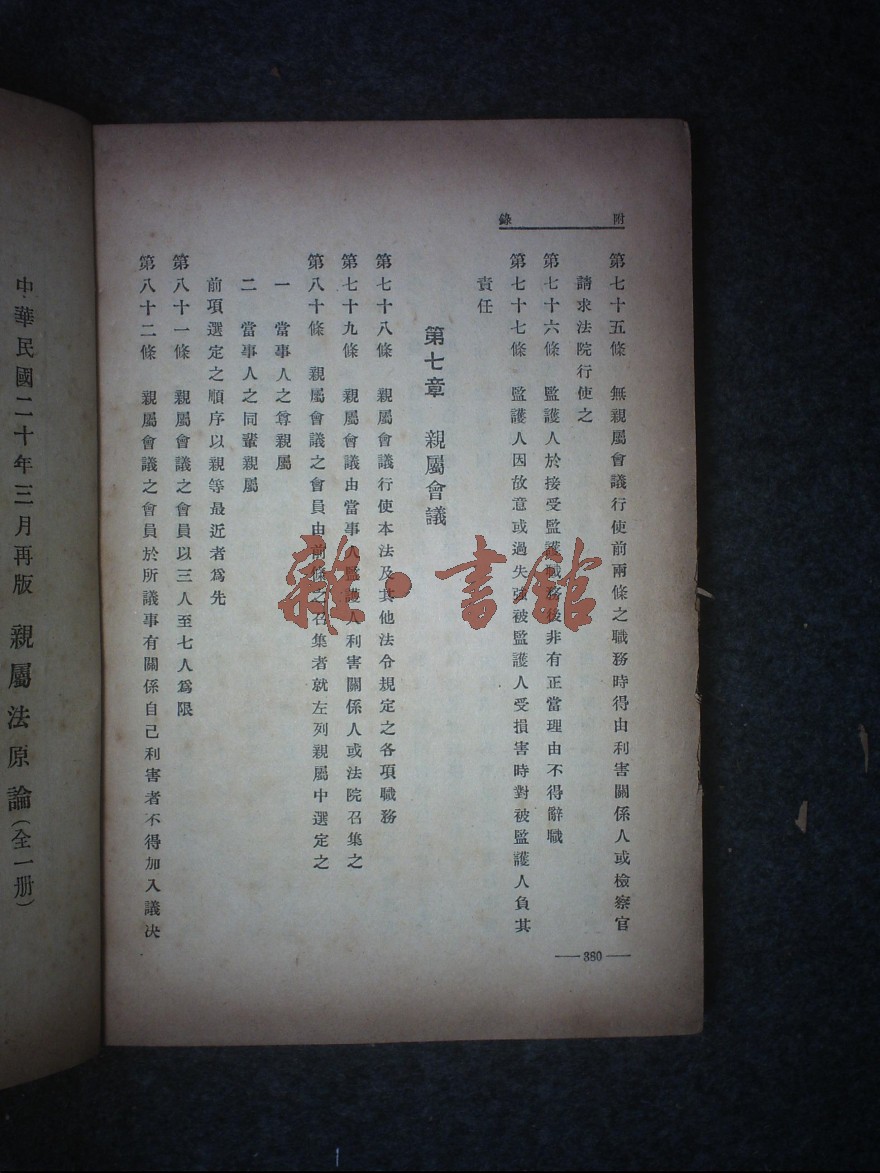 附錄
第七十五條　無親屬會議行使前兩條之職務時得由利害關係人或檢察官
請求法院行使之
第七十六條　監護人於接受監護職務後非有正當理由不得辭職
第七十七條　監護人因故意或過失強被監護人受損害時對被監護人負其
責任
第七章　親屬會議
第七十八條　親屬會議行使本法及其他法令規定之各項職務
第七十九條　親屬會議由當事人監護人利害關係人或法院召集之
第八十條　親屬會議之會員由前條之召集者就左列親屬中選定之
一　當事人之尊親屬
二　當事人之同輩親屬
前項選定之順序以親等最近者爲先
第八十一條　親屬會議之會員以三人至七人爲限
第八十二條　親屬會議之會員於所議事有關係自己利害者不得加入議決
380
中華民國二十年三月再版　親屬法原論(全一册)
雜·書館